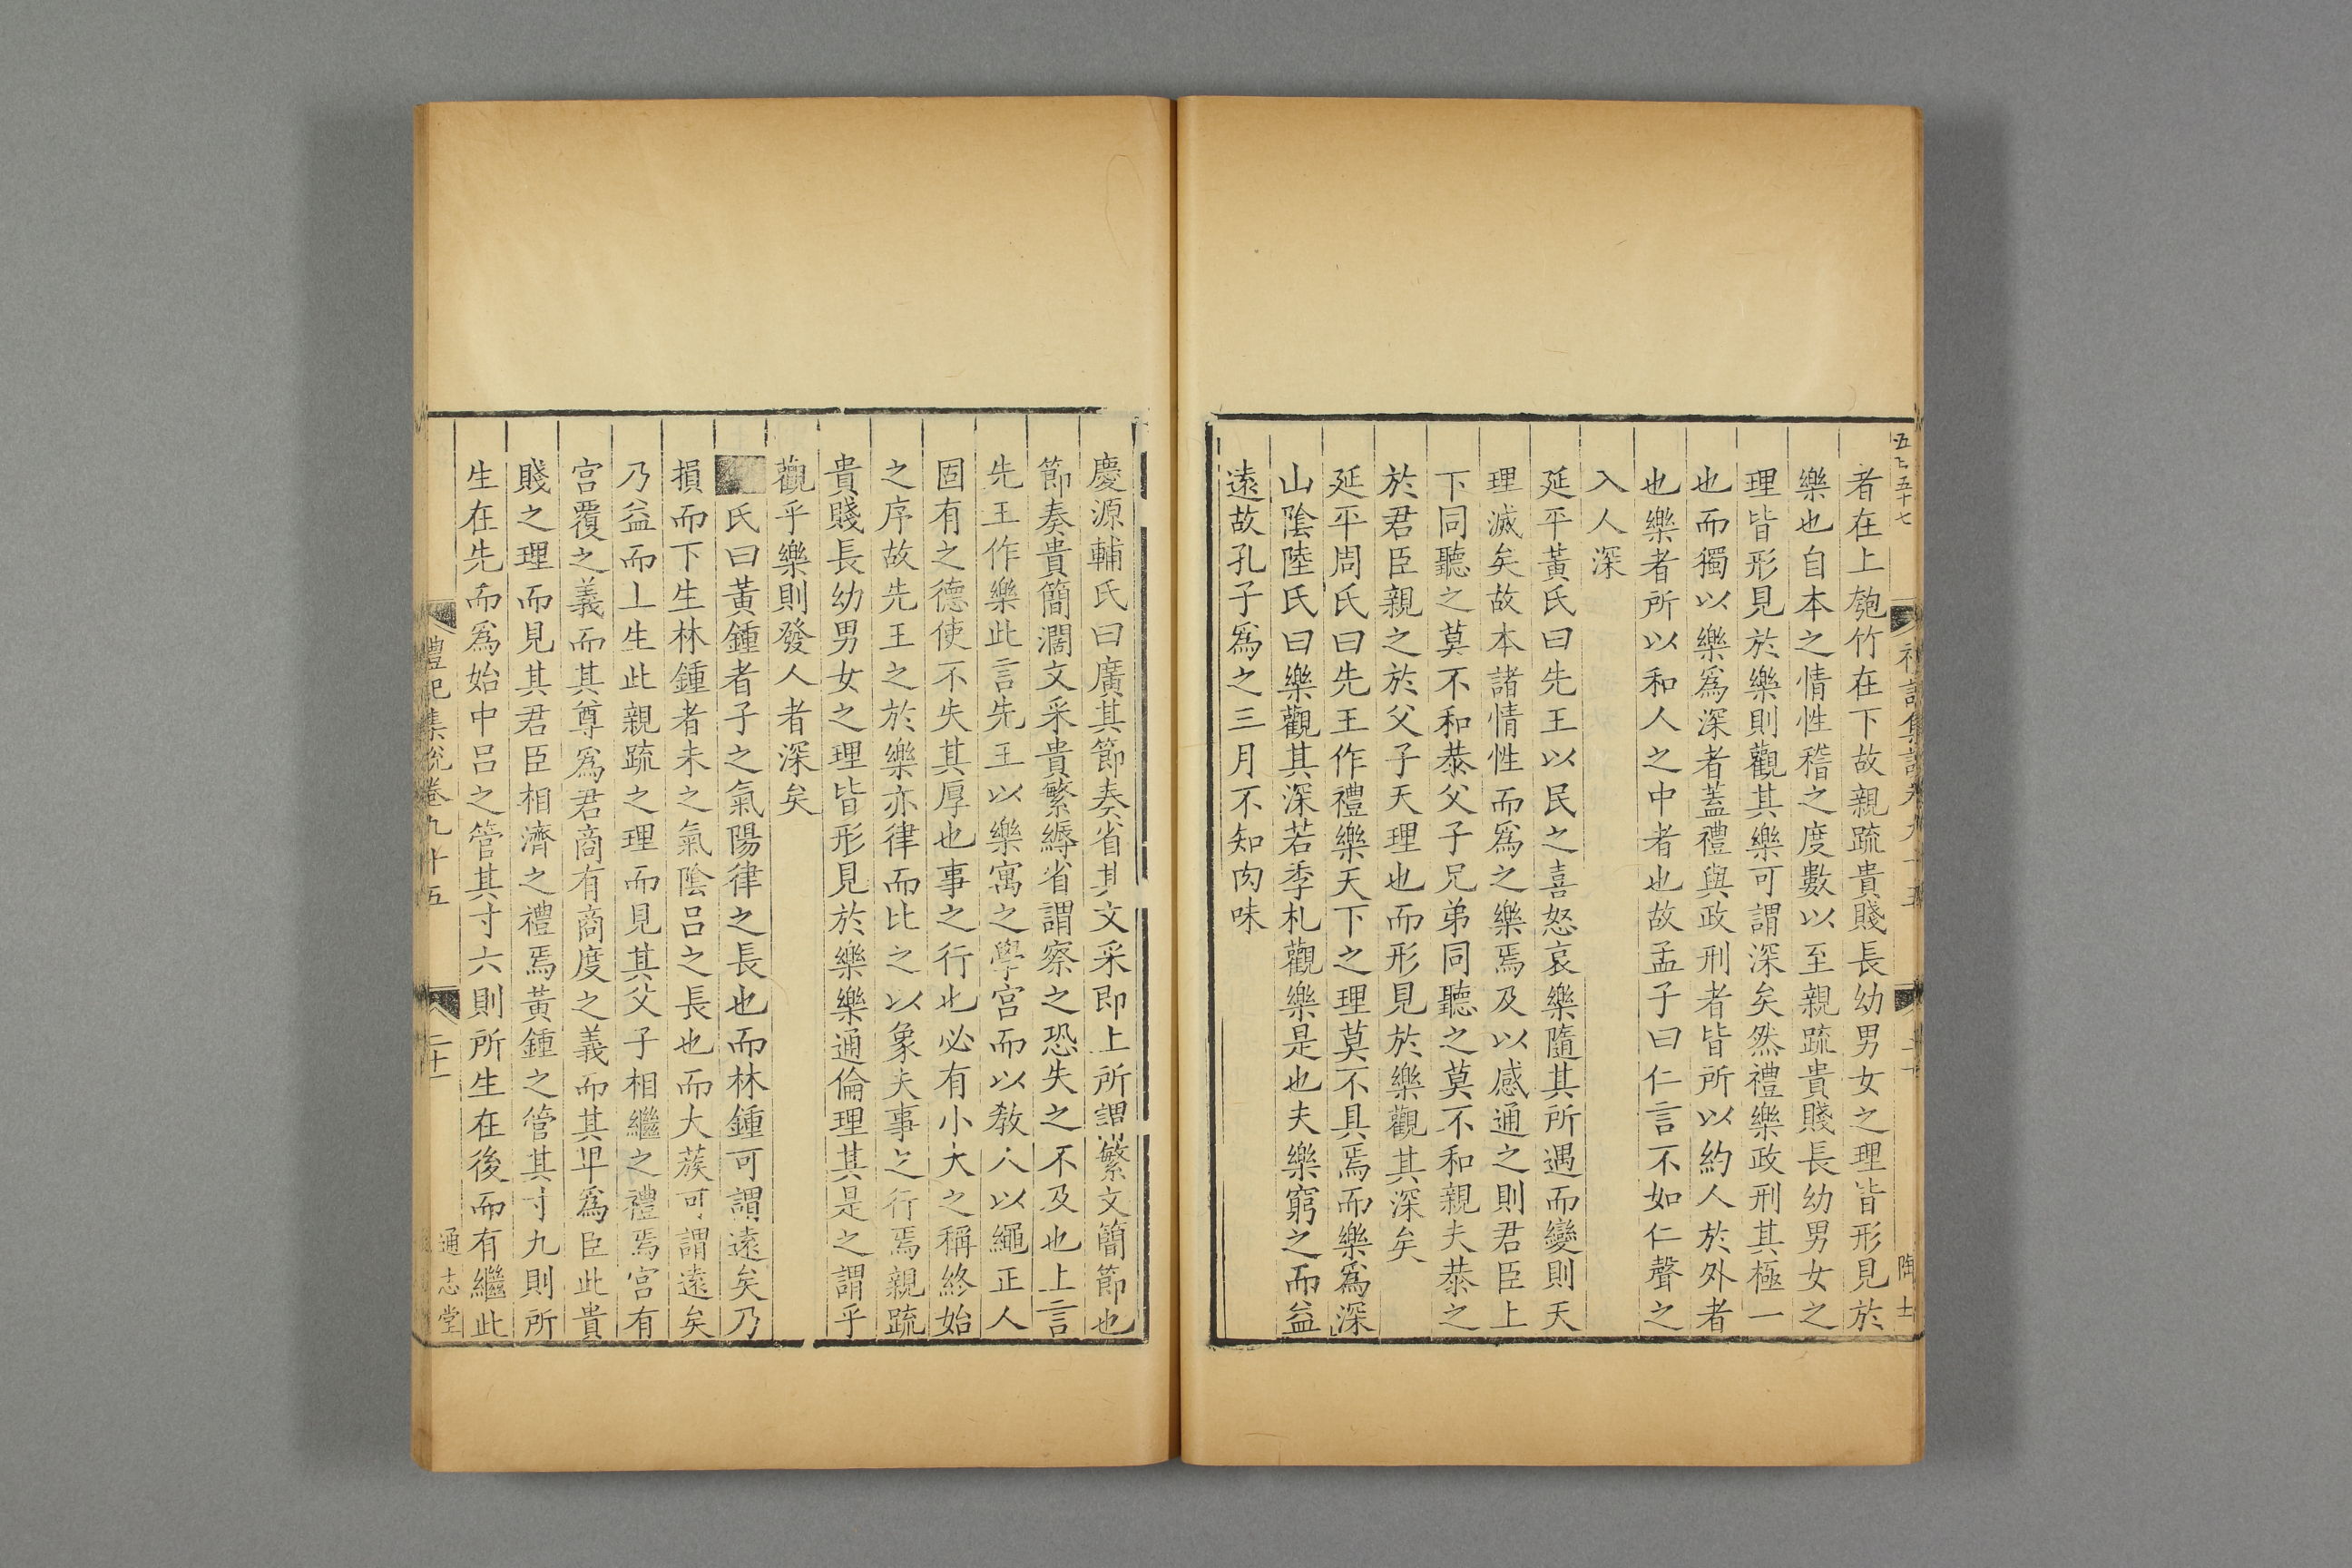 者在上匏竹在下故親疏貴賤長幼男女之理皆形見於
樂也自本之情性稽之度數以至親疏貴賤長幼男女之
理皆形見於樂則觀其樂可謂深矣然禮樂政刑其極一
也而獨以樂爲深者蓋禮與政刑者皆所以約人於外者
也樂者所以和人之中者也故孟子曰仁言不如仁聲之
入人深
延平黃氏曰先王以民之喜怒哀樂隨其所遇而變則天
理滅矣故本諸情性而爲之樂焉及以感通之則君臣上
下同聽之莫不和恭父子兄弟同聽之莫不和親夫恭之
於君臣親之於父子天理也而形見於樂觀其深矣
延平周氏曰先王作禮樂天下之理莫不具焉而樂爲深
山陰陸氏曰樂觀其深若季札觀樂是也夫樂窮之而益
遠故孔子爲之三月不知肉味
陶士
慶源輔氏曰廣其節奏省其文采即上所謂繁文簡節也
節奏貴簡濶文采貴繁縟省謂察之恐失之不及也上言
先王作樂此言先王以樂寓之學宫而以教人以繩正人
固有之德使不失其厚也事之行也必有小大之稱終始
之序故先王之於樂亦律而比之以象夫事之行焉親疏
貴賤長幼男女之理皆形見於樂樂通倫理其是之謂乎
觀乎樂則發人者深矣
氏曰黃鍾者子之氣陽律之長也而林鍾可謂遠矣乃
損而下生林鍾者未之氣陰呂之長也而大蔟可謂遠矣
乃益而上生此親疏之理而見其父子相繼之禮焉宫有
宫覆之義而其尊爲君商有商度之義而其卑爲臣此貴
賤之理而見其君臣相濟之禮焉黃鍾之管其寸九則所
生在先而爲始中呂之管其寸六則所生在後而有繼此
禮記集說卷九十五
二十一
通志堂